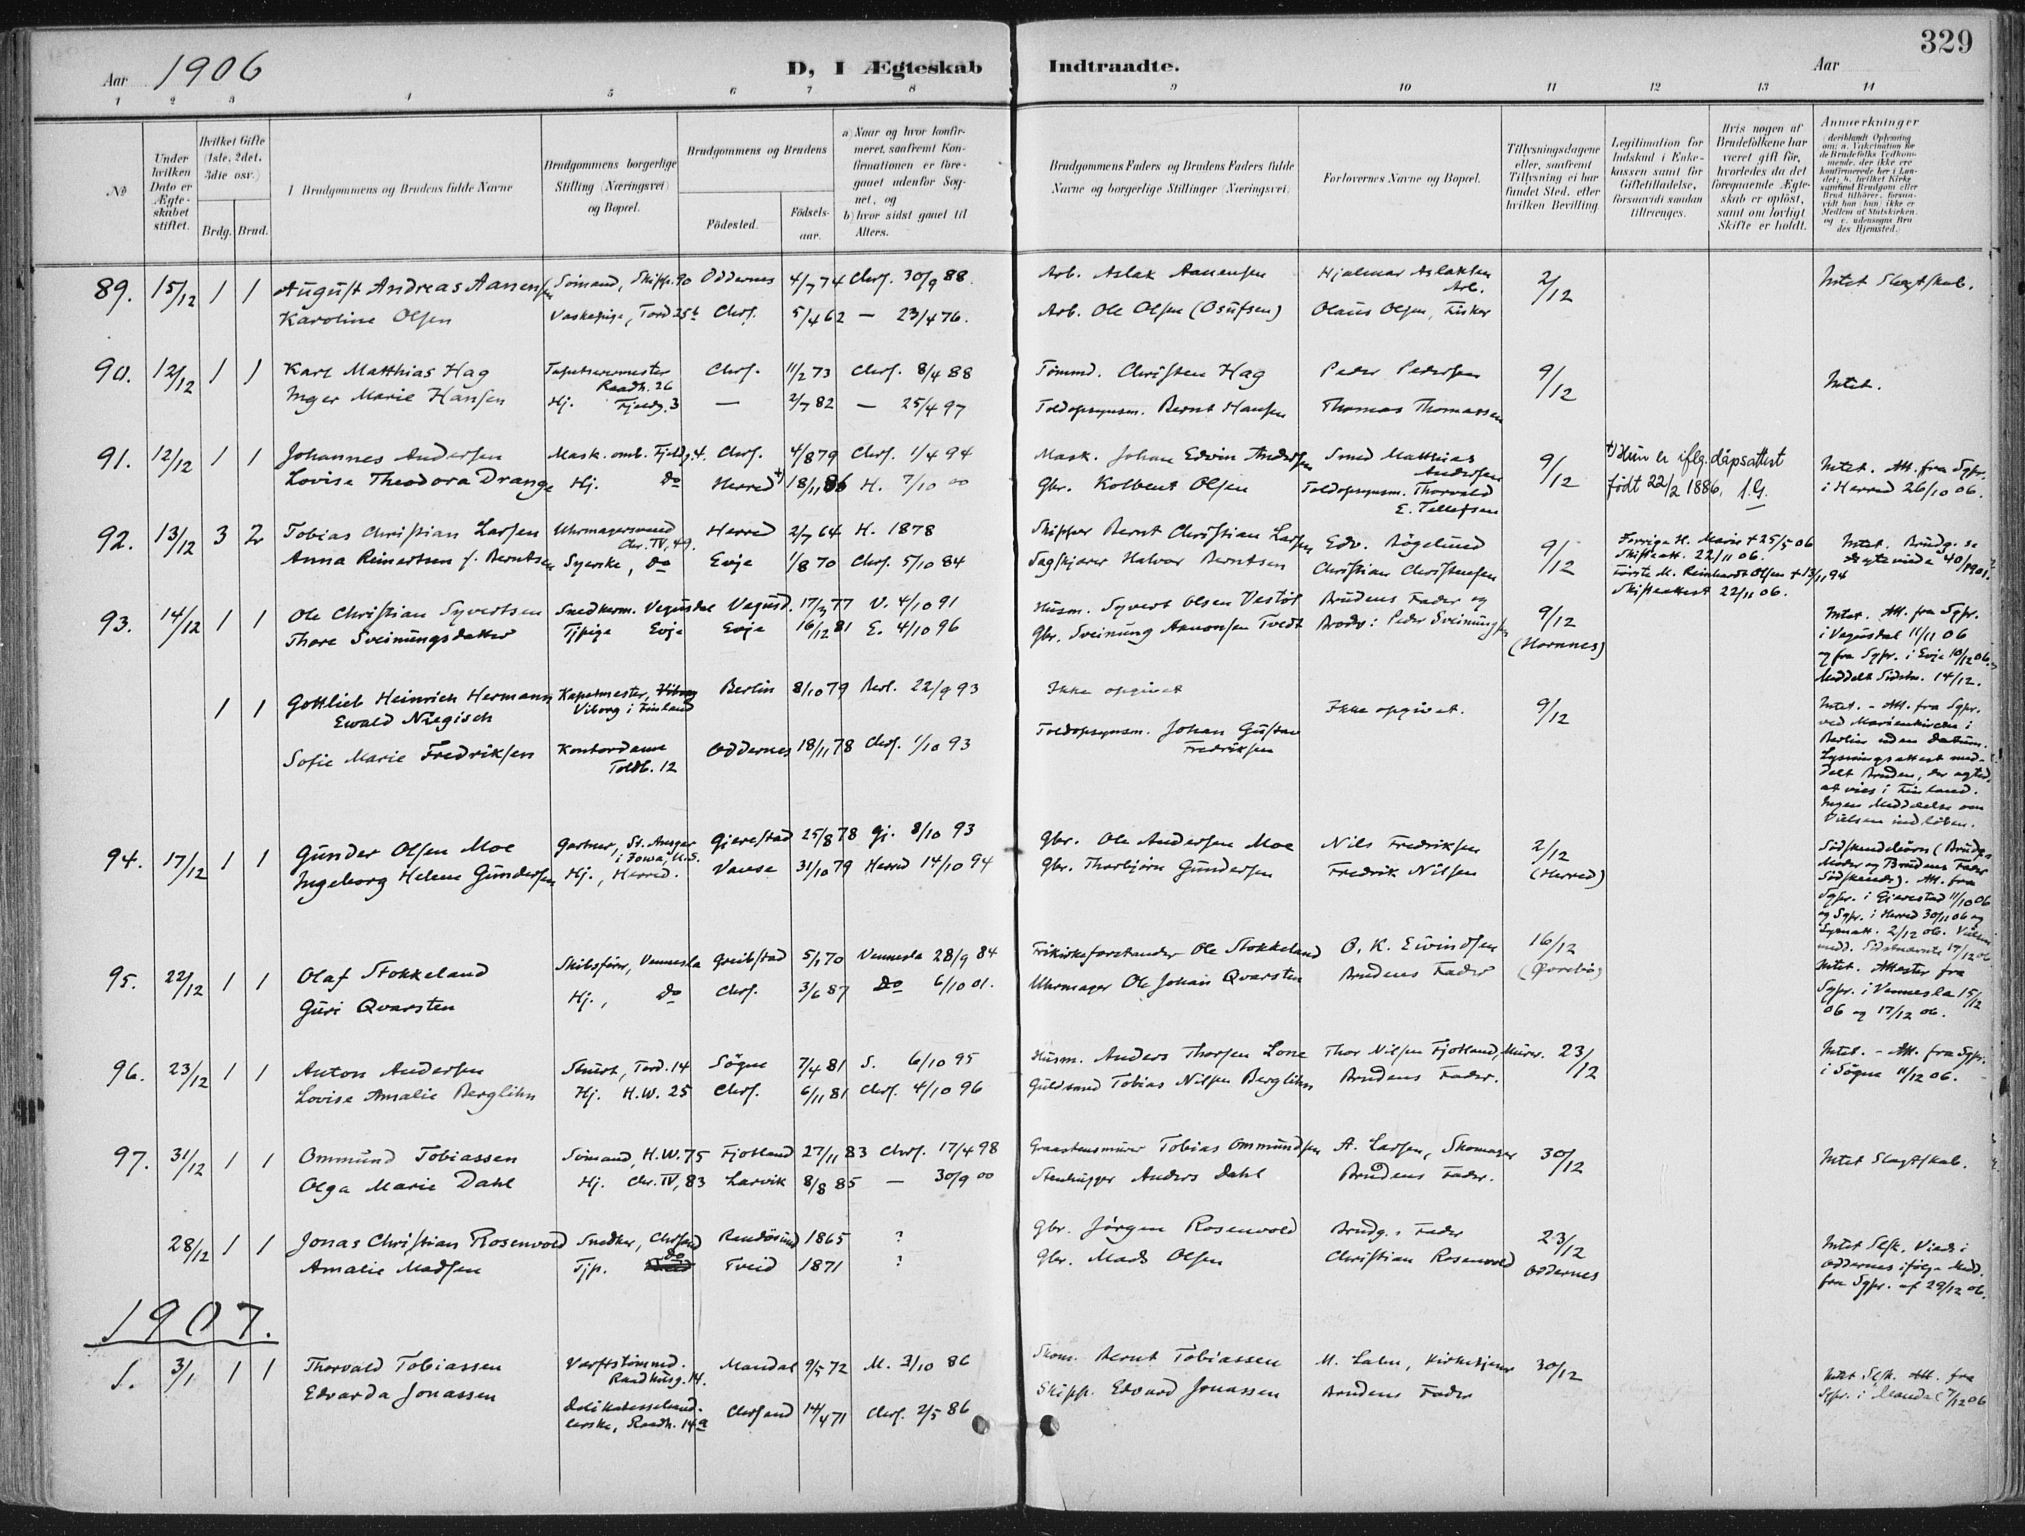 329
Aar 1906 D, I Ægteskab Indtraadte. Aar
1 2 3 4 5 6 7 8 9 10 11 12 13 14
No
Under hvilken Dato er Ægteskabet stiftet.
Hvilket Gifte (1ste, 2det, 3die osv.)
Brdg. Brud.
Brudgommens og Brudens fulde Navne
Brudgommens borgerlige Stilling (Næringsvei) og Bopæl.
Brudgommens og Brudens
Fødested. Fødselsaar.
a) Naar og hvor konfirmeret, saafremt Konfirmationen er foregaaet udenfor Sognet, og
b) hvor sidst gaaet til Alters.
Brudgommens Faders og Brudens Faders fulde Navne og borgerlige Stillinger (Næringsvei)
Forlovernes Navne og Bopæl.
Tillysningsdagene eller, saafremt Tillysning ei har fundet Sted, efter hvilken Bevilling
Legitimation for Indskud i Enkekassen samt for Giftetilladelse, forsaavidt saadan tiltrænges.
Hvis nogen af Brudefolkene har været gift før, hvorledes da det foregaaende Ægteskab er opløst, samt om lovligt Skifte er holdt.
Anmærkninger
89. 15/12 1 1 August Andreas Aanensen Sömand, Skippg. 90 Oddernes 4/7 74 Chrs. 30/9 88. Arb. Aslak Aanensen Hjalmar Aslaksen Arb. 2/12 Intet Slægtskab.
Karoline Olsen Vaskepige, Tord 25b Chrs. 5/4 62 — 23/4 76. Arb. Ole Olsen (Osufsen) Olaus Olsen, Fisker
90. 12/12 1 1 Karl Matthias Hag Tapetserermester Raadh. 26 Chrs. 11/2 73 Chrs. 8/4 88 Tömmd. Christen Hag Peder Pedersen 9/12 Intet.
Inger Marie Hansen Hj. Fjeldg. 3 — 2/7 82 — 25/4 97 Toldopsynsm. Bernt Hansen Thomas Thomassen
91. 12/12 1 1 Johannes Andersen Mask. omb. Fjeldg. 4. Chrs. 4/8 79 Chrs. 1/4 94 Mask. Johan Edvin Andersen Smed Matthias Andersen 9/12 +) Hun er iflg. dåpsattest født 22/2 1886. Intet. Att. fra Sgpr. i Herred 26/10 06.
Lovise Theodora Drange Hj. Do Herred +) 18/11 86 H. 7/10 00 Gbr. Kolbent Olsen Toldopsynsm. Thorvald E. Tellefsen
92. 13/12 3 2 Tobias Christian Larsen Uhrmagersvend Chr. IV, 49. Herred 2/7 64 H. 1878 Skipper Bernt Christian Larsen Edv. Bögelund 9/12 Forrige H. Marie + 25/5 06 Skifteatt. 22/11 06.
Anna Reinertsen f. Berntsen Syerske, Do Evje 1/8 70 Chrs. 5/10 84 Sagskjærer Halvor Berntsen Christian Christensen Første M. Reinhardt Olsen + 13/11 94 Skifteattest 22/11 06.
Intet. Brudg. se Ægteviede 40/1901.
93. 14/12 1 1 Ole Christian Syvertsen Snedkerm. Vegusdal Vegusd. 17/3 77 V. 4/10 91 Husm. Syvert Olsen Vestöl Brudens Fader og 9/12 (Hornnes)
Thore Sveinungsdatter Tjpige Evje Evje 16/12 81 E. 4/10 96 Gbr. Sveinung Aanonsen Tvedt Brodr: Peder Sveinungsen
Intet. Att. fra Sgpr. i Vegusdal 11/11 06 og fra Sgpr. i Evje 10/12 06. Meddelt Sidstn. 14/12.
1 1 Gottlieb Heinrich Hermann Ewald Kapelmester, Viborg i Finland Berlin 8/10 79 Berl. 22/9 93 Ikke opgivet Ikke opgivet. 9/12
Sofie Marie Fredriksen Kontordame Toldb. 12 Oddernes 18/11 78 Chrs. 1/10 93 Toldopsynsm. Johan Gustav Fredriksen
Intet. - Att. fra Sgpr. ved Marienkirche i Berlin uden Datum. Lysningsattest meddelt Bruden, der agted. at vies i Finland. Ingen Meddelelse om Vielsen indløben.
94. 17/12 1 1 Gunder Olsen Moe Gartner, St. Ansgar i Iowa, U.S. Gjerestad 25/8 78 Gj. 8/10 93 Gbr. Ole Andersen Moe Nils Fredriksen 2/12 (Herred)
Ingeborg Helene Gundersen Hj., Herred. Vanse 31/10 79 Herred 14/10 94 Gbr. Thorbjörn Gundersen Fredrik Nilsen
Södskendebörn (Brudgs Moder og Brudens Fader Södskende). Att. fra Sgpr. i Gjerestad 11/10 06 og Sgpr. i Herred 30/11 06 og Lysnatt. 2/12 06.
95. 22/12 1 1 Olaf Stokkeland Skibsförer, Vennesla Greibstad 5/1 70 Vennesla 28/9 84 Frikirkeforstander Ole Stokkeland O. K. Eivindsen 16/12 (Øvrebø)
Guri Qvarsten Hj., Do Chrs. 3/6 87 Do 6/10 01. Uhrmager Ole Johan Qvarsten Brudens Fader
Intet. Attester fra Sgpr. i Vennesla 15/12 06 og 17/12 06.
96. 23/12 1 1 Anton Andersen Stuert, Tord. 14 Søgne 7/4 81 S. 6/10 95 Husm. Anders Thorsen Lone Thor Nilsen Fjotland, Murer. 23/12 Intet. - Att. fra Sgpr. i Søgne 11/12 06.
Lovise Amalie Berglihn Hj. H.W. 25 Chrs. 6/11 81 Chrs. 4/10 96 Guldsmed Tobias Nilsen Berglihn Brudens Fader.
97. 31/12 1 1 Ommund Tobiassen Sömand, H.W. 75 Fjotland 27/11 83 Chrs. 17/4 98 Graastensmurer Tobias Ommundsen A. Larsen, Skomager 30/12 Intet Slægtskab.
Olga Marie Dahl Hj. Chr. IV, 83 Larvik 8/8 85 — 30/9 00 Stenhugger Anders Dahl Brudens Fader.
28/12 1 1 Jonas Christian Rosenvold Snedker, Chrsand Randösund 1865 ? Gbr. Jörgen Rosenvold Brudg.s Fader 23/12 Oddernes
Amalie Madsen Tjp. Do Tveid 1871 ? Gbr. Mads Olsen Christian Rosenvold
Intet Slsk. Viede i Oddernes ifölge Medd. fra Sgpr. af 29/12 06.
1907.
1. 3/1 1 1 Thorvald Tobiassen Værftstömmd. Raadhusg. 14. Mandal 9/5 72 M. 3/10 86 Skom. Bernt Tobiassen M. Lahn, Kirketjener 30/12
Edvarda Jonassen Delikatessehandlerske, Raadh. 14a Chrsand 14/4 71 Chrs. 2/5 86 Skipp. Edvard Jonassen Brudens Fader
Intet Slsk. Att. fra Sgpr. i Mandal 7/12 06